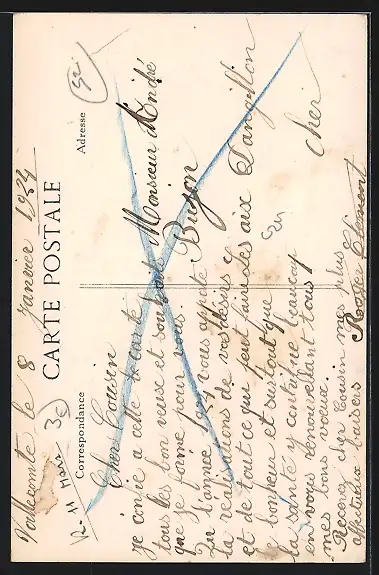 Valbomte le 8 Janvier 1924
CARTE POSTALE
Correspondance
Adresse
Cher Cousin
je confie a cette carte
tous les bon veux et souhais
que je forme pour vous
l'année vous apporte
la réalisations de vos désirs
et de tout ce qui peut faire
le bonheur et surtout que
la santé y contribue beaucoup
en vous renouvellant tous
mes bons voeux.
Recevez cher Cousin mes plus
affectueux baisers Roster Clement
Monsieur André
Buzon
Les aix Dangillon
Cher